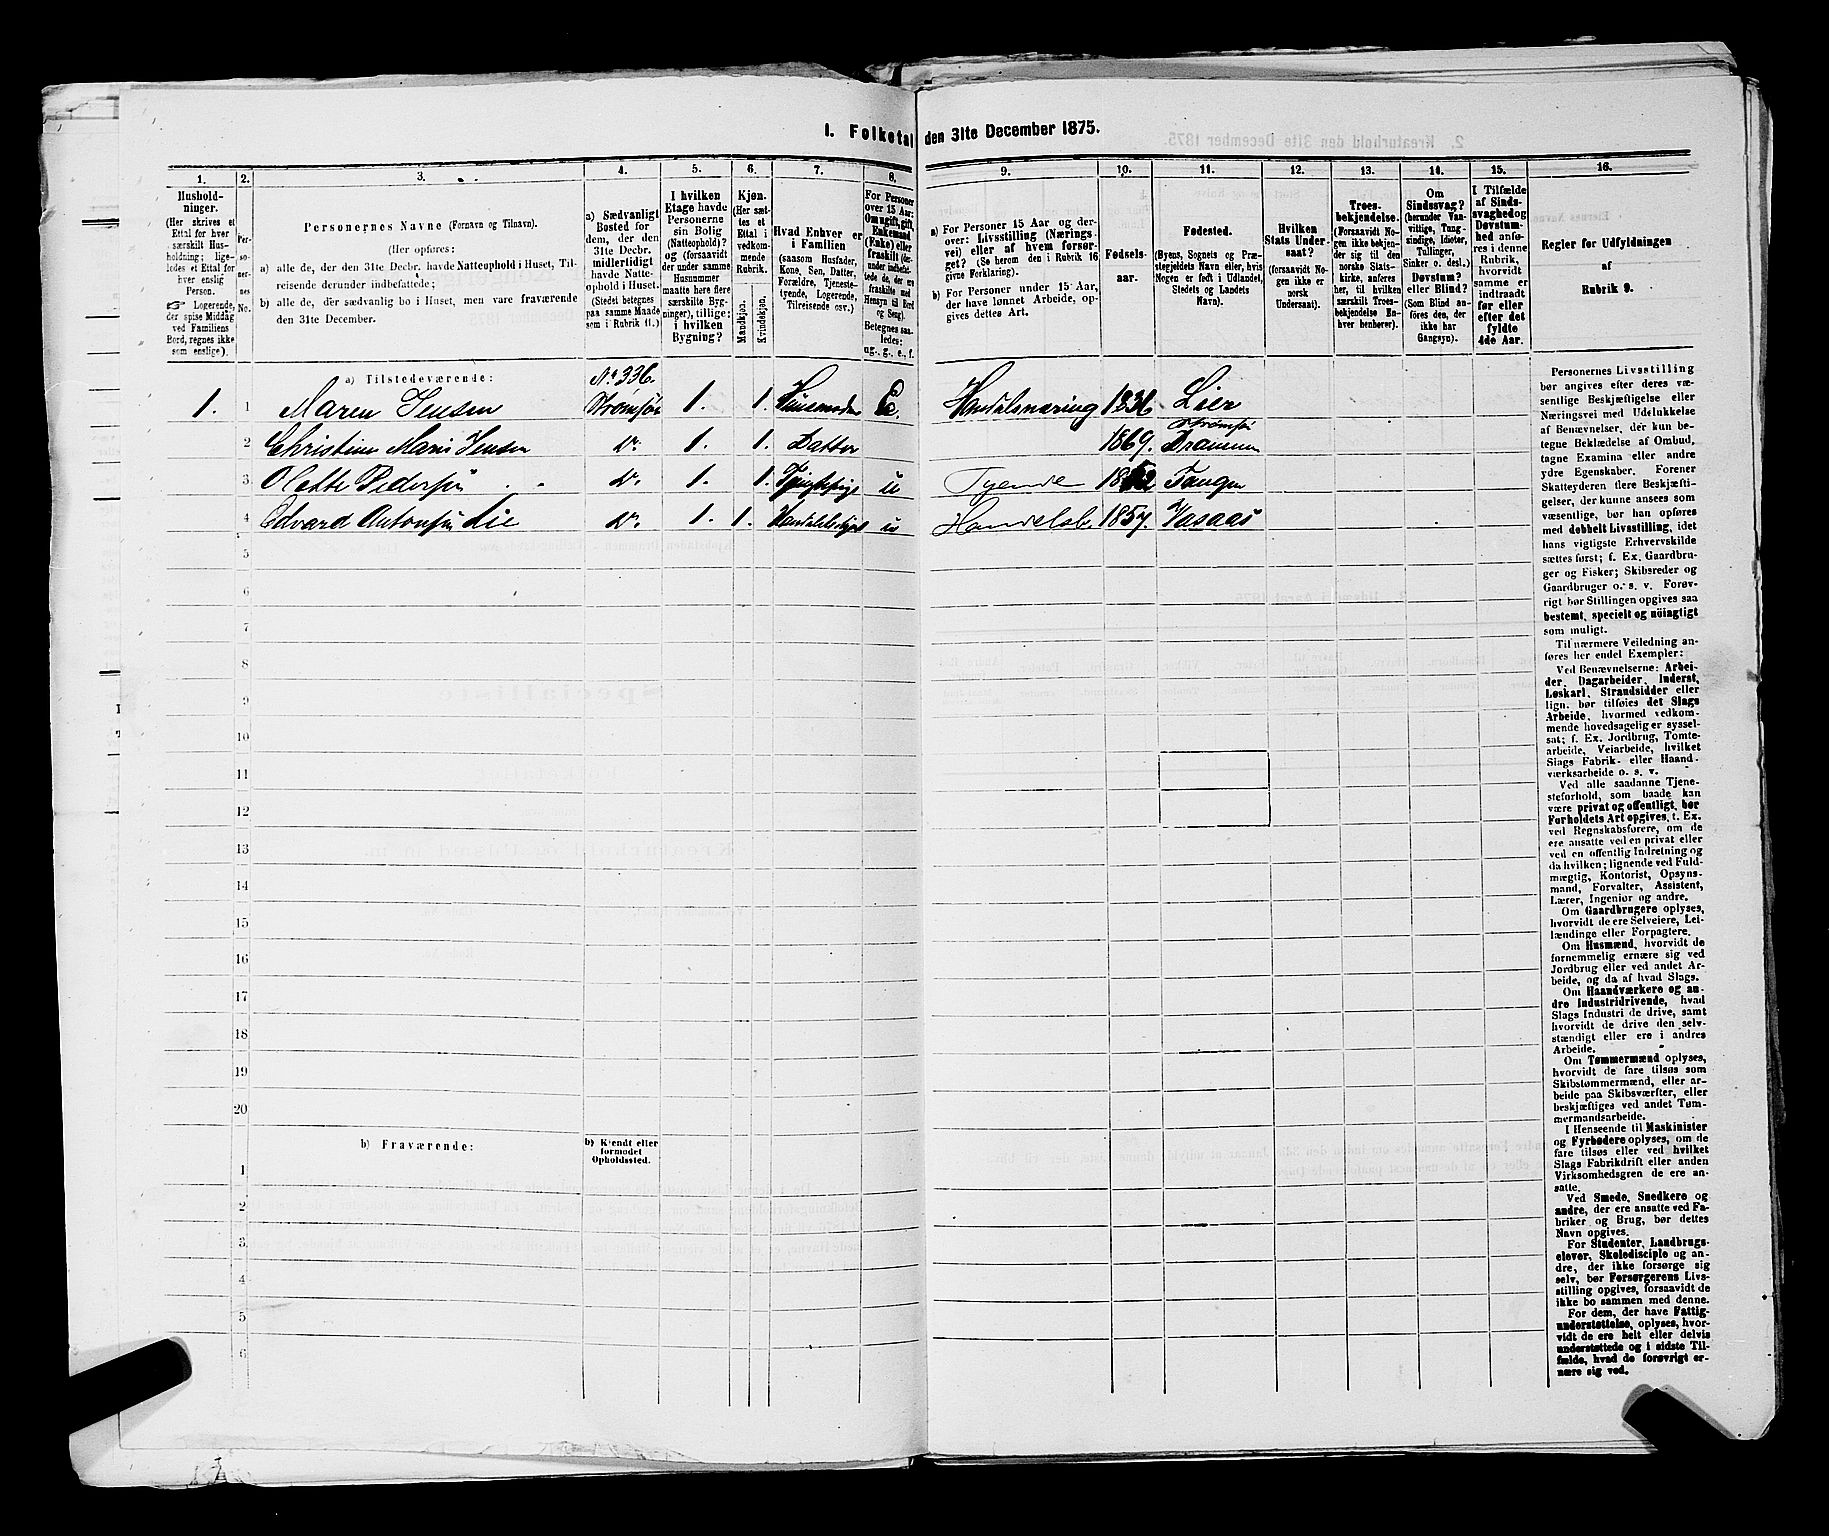 I. Folketal den 31te December 1875.
1. 2. 3. 4. 5. 6. 7. 8. 9. 10. 11. 12. 13. 14. 15. 16.
Hushold-
ninger.
(Her skrives et
Ettal for hver
særskilt Hus-
holdning; lige-
ledes et Ettal for
hver enslig
Person.
☞ Logerende,
der spise Middag
ved Familiens
Bord, regnes ikke
som enslige).
Per-
so-
ner-
nes
No.
Personernes Navne (Fornavn og Tilnavn).
(Her opføres:
a) alle de, der den 31te Decbr. havde Natteophold i Huset, Til-
reisende derunder indbefattede;
b) alle de, der sædvanlig bo i Huset, men vare fraværende
den 31te December.
a) Sædvanligt
Bosted for
dem, der den
31te Decbr.
midlertidigt
havde Natte-
ophold i Huset.
(Stedet betegnes
paa samme Maade
som i Rubrik 11.)
I hvilken
Etage havde
Personerne
sin Bolig
(Natteophold)?
og (forsaavidt
der under samme
Husnummer
maatte høre flere
særskilte Byg-
ninger), tillige:
i hvilken
Bygning?
Kjøn.
(Her sæt-
tes et
Ettal i
vedkom-
mende
Rubrik.
Mandkjøn.
Kvindekjøn.
Hvad Enhver er
i Familien
(saasom Husfader,
Kone, Søn, Datter,
Forældre, Tjeneste-
tyende, Logerende,
Tilreisende osv.)
For Personer
over 15 Aar:
Om ugift, gift,
Enkemand
(Enke) eller
fraskilt (der-
under indbefat-
tede de, der ere
fraskilte med
Hensyn til Bord
og Seng).
Betegnes saa-
ledes:
ug., g., e., f.
a) For Personer 15 Aar og der-
over: Livsstilling (Nærings-
vei) eller af hvem forsør-
get? (Se herom den i Rubrik 16
givne Forklaring).
b) For Personer under 15 Aar,
der have lønnet Arbeide, op-
gives dettes Art.
Fødsels-
aar.
Fødested.
(Byens, Sognets og Præ-
stegjeldets Navn eller, hvis
Nogen er født i Udlandet,
Stedets og Landets
Navn).
Hvilken
Stats Under-
saat?
(forsaavidt No-
gen ikke er
norsk
Undersaat).
Troes-
bekjendelse.
(Forsaavidt No-
gen ikke bekjen-
der sig til den
norske Stats-
kirke, anføres
her, til hvilken
særskilt Troes-
bekjendelse En-
hver henhører).
Om
Sindssvag?
(herunder Van-
vittige, Tung-
sindige, Idioter,
Tullinger,
Sinker o. desl.)
Døvstum?
eller Blind?
(Som Blind an-
føres den, der
ikke har
Gangsyn).
I Tilfælde
af Sinds-
svaghed og
Døvstum-
hed anfø-
res i denne
Rubrik,
hvorvidt
samme er
indtraadt
før eller
efter det
fyldte
4de Aar.
Regler for Udfyldningen
af
Rubrik 9.
a) Tilstedeværende:
No 336.
1. 1 Maren Jensen Strømsø 1. 1. Huusmoder E. Handelsnæring 1836 Lier
2 Christine Marie Jensen do. 1. 1. Datter 1869. Strømsø Drammen
3 Olette Pedersøn do. 1. 1. u Tyende Tangen
4 Edvard Antonsøn Lie do. 1. 1. u Handelsb. 1857. Vasaas
5
6
7
8
9
10
11
12
13
14
15
16
17
18
19
20
b) Fraværende:
b) Kjendt eller
formodet
Opholdssted.
1
2
3
4
5
6
Personernes Livsstilling
bør angives efter deres væ-
sentlige Beskjæftigelse eller
Næringsvei med Udelukkelse
af Benævnelser, der kun be-
tegne Beklædelse af Ombud,
tagne Examina eller andre
ydre Egenskaber. Forener
Skatteyderen flere Beskjæfti-
gelser, der kunne ansees som
væsentlige, bør han opføres
med dobbelt Livsstilling, idet
hans vigtigste Erhvervskilde
sættes først; f. Ex. Gaardbru-
ger og Fisker; Skibsreder og
Gaardbruger o. s. v. Forøv-
rigt bør Stillingen opgives saa
bestemt, specielt og nöiagtigt
som muligt.
Til nærmere Veiledning an-
føres her endel Exempler:
Ved Benævnelserne: Arbei-
der, Dagarbeider, Inderst,
Løskarl, Strandsidder eller
lign. bør tilføies det Slags
Arbeide, hvormed vedkom-
mende hovedsagelig er syssel-
sat; f. Ex. Jordbrug, Tomte-
arbeide, Veiarbeide, hvilket
Slags Fabrik- eller Haand-
værksarbeide o. s. v.
Ved alle saadanne Tjene-
steforhold, som baade kan
være privat og offentligt, bør
Forholdets Art opgives, t. Ex.
ved Regnskabsførere, om de
ere ansatte ved en privat eller
ved en offentlig Indretning og
da hvilken; lignende ved Fuld-
mægtig, Kontorist, Opsyns-
mand, Forvalter, Assistent,
Lærer, Ingeniør og andre.
Om Gaardbrugere oplyses,
hvorvidt de ere Selveiere, Lei-
lændinge eller Forpagtere.
Om Husmænd, hvorvidt de
fornemmelig ernære sig ved
Jordbrug eller ved andet Ar-
beide, og da af hvad Slags.
Om Haandværkere og an-
dre Industridrivende, hvad
Slags Industri de drive, samt
hvorvidt de drive den selv-
stændigt eller ere i andres
Arbeide.
Om Tømmermænd oplyses,
hvorvidt de fare tilsøs som
Skibstømmermænd, eller ar-
beide paa Skibsværfter, eller
beskjæftiges ved andet Tøm-
mermandsarbeide.
I Henseende til Maskinister
og Fyrbødere oplyses, om de
fare tilsøs eller ved hvilket
Slags Fabrikdrift eller anden
Virksomhedsgren de ere an-
satte.
Ved Smede, Snedkere og
andre, der ere ansatte ved Fa-
briker og Brug, bør dettes
Navn opgives.
For Studenter, Landbrugs-
elever, Skoledisciple og an-
dre, der ikke forsørge sig
selv, bør Forsørgerens Livs-
stilling opgives, forsaavidt de
ikke bo sammen med denne.
For dem, der have Fattig-
understøttelse, oplyses, hvor-
vidt de ere helt eller delvis
understøttede og i sidste Til-
fælde, hvad de forøvrigt er-
nære sig ved.